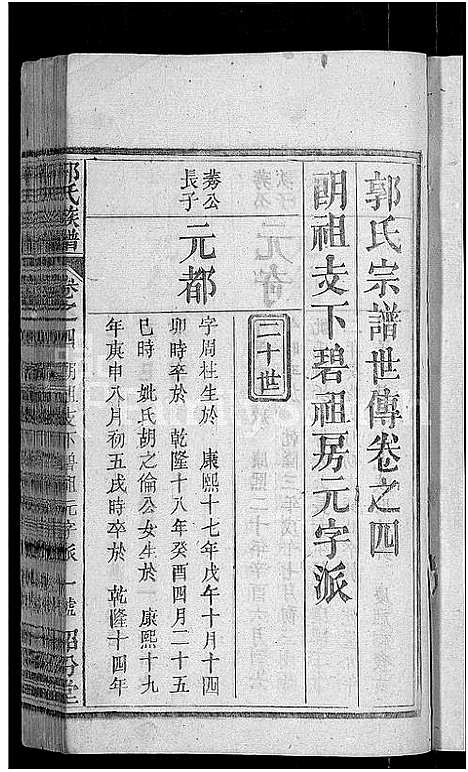 郭氏宗譜世傳卷之四
朙祖支下碧祖房元字派
二十世
莠公
長子
元都
字周柱生於 康熙十七年戊午十月十四
卯時卒於 乾隆十八年癸酉四月二十五
巳時 妣氏胡之倫公女生於 康熙十九
年庚申八月初五戌時卒於 乾隆十四年
郭氏族譜 卷之四 朙祖支下碧祖元字派 一號